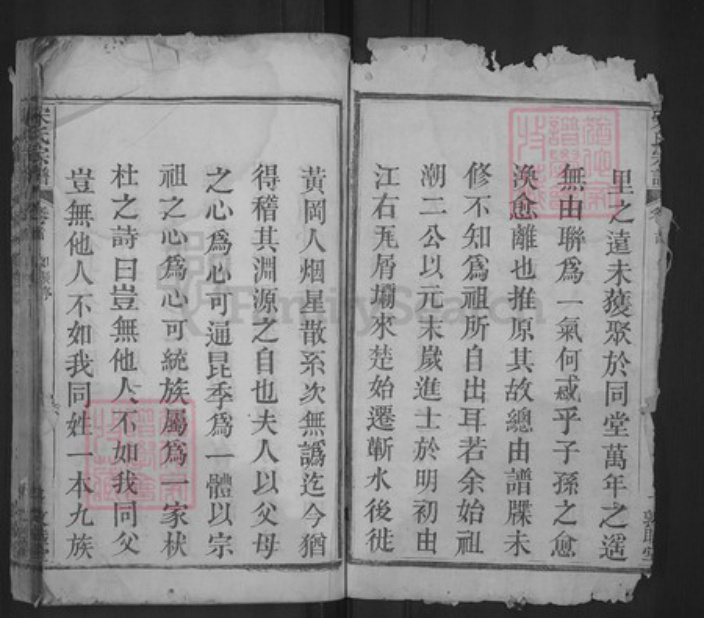 里之遠未獲聚於同堂萬年之遙
無由聯爲一氣何惑乎子孫之愈
渙愈離也推原其故總由譜牒未
修不知爲祖所自出耳若余始祖
潮二公以元末歲進士於明初由
江右瓦屑壩來楚始遷蘄水後徙
黃岡人烟星散系次無譌迄今猶
得稽其淵源之自也夫人以父母
之心爲心可通昆季爲一體以宗
祖之心爲心可統族屬爲一家杕
杜之詩曰豈無他人不如我同父
豈無他人不如我同姓一本九族
宋氏宗譜
FamilySearch